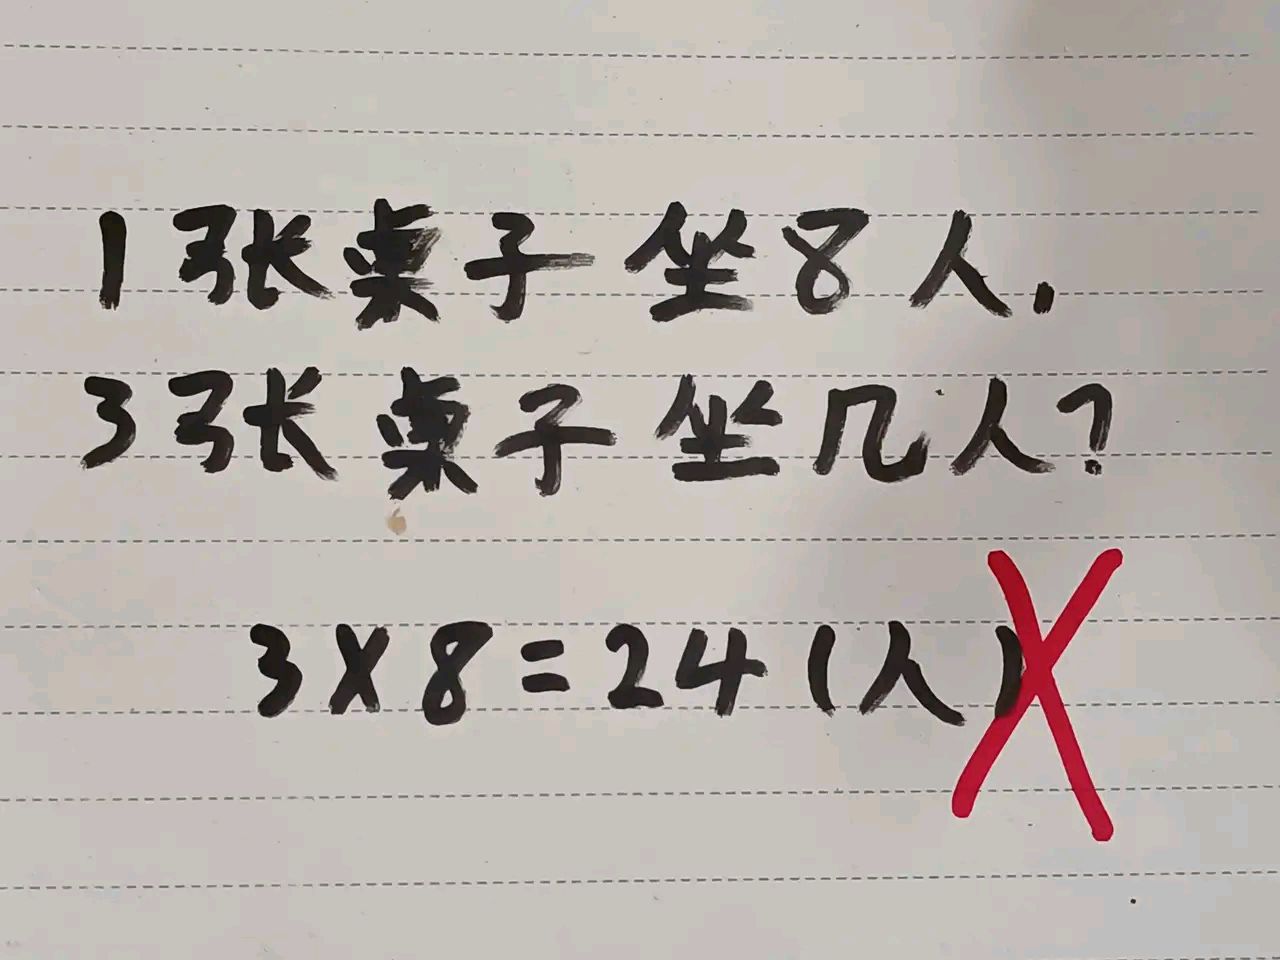 1张桌子坐8人.
3张桌子坐几人?
3×8=24(人)